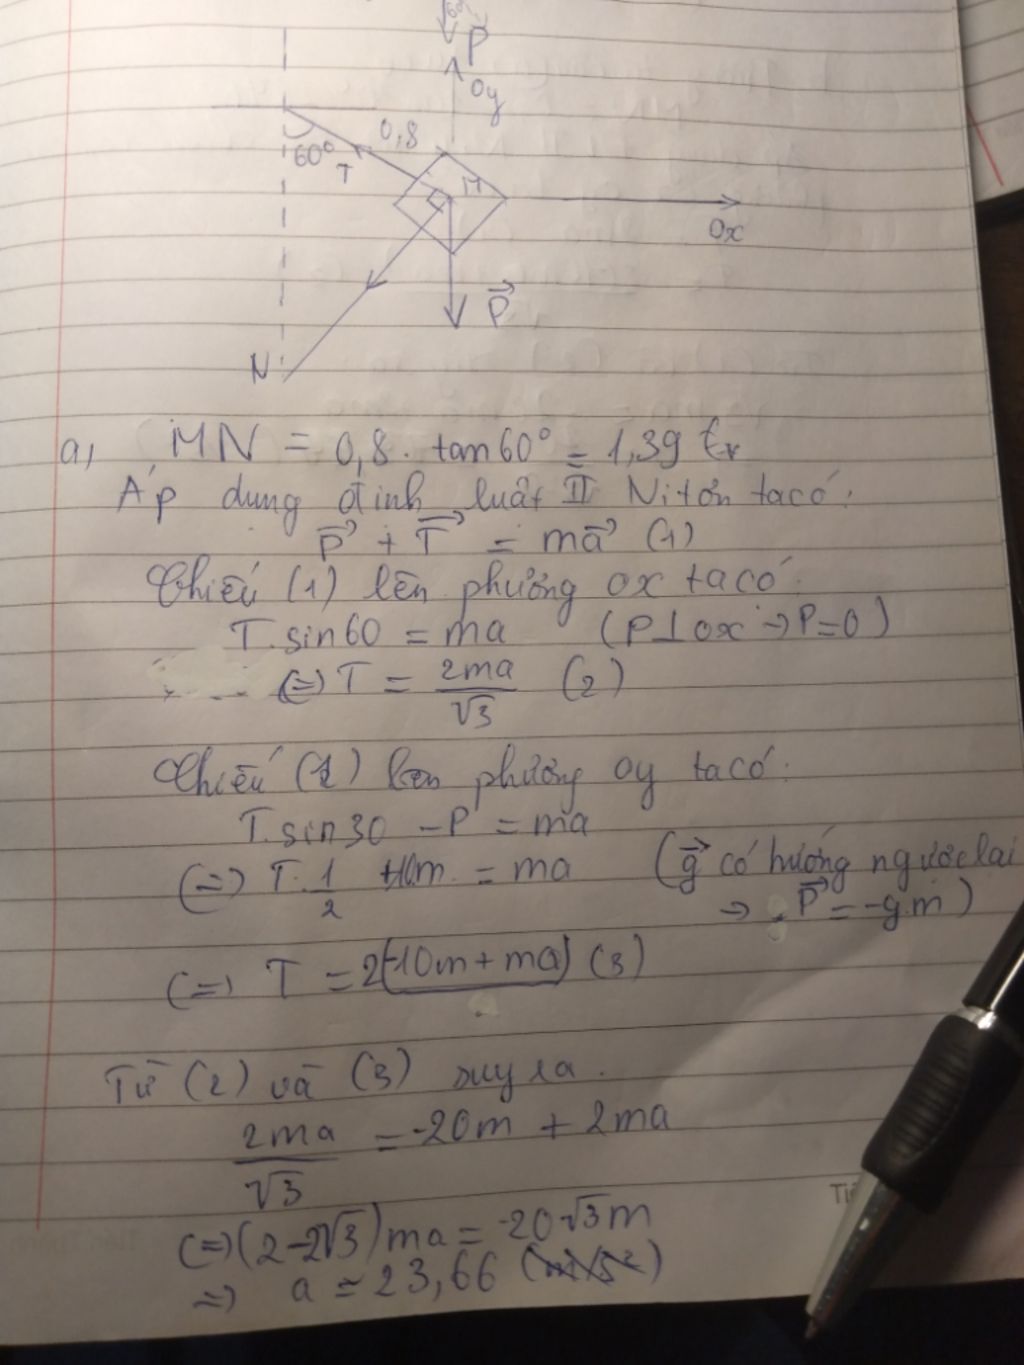 60
P
Oy
0,8
60°
T
M
Ox
P
N
a, MN = 0,8 . tan60° = 1,39
Áp dụng định luật II Nitơn ta có:
P + T = ma (1)
Chiếu (1) lên phương ox ta có:
T. sin60 = ma (P⊥ox → P=0)
(=) T = 2ma/√3 (2)
Chiếu (1) lên phương oy ta có:
T. sin30 - P = ma
(=) T. 1/2 +10m = ma (g có hướng ngược lại
→ P = -g.m)
(=) T = 2(-10m + ma) (3)
Từ (2) và (3) suy ra.
2ma/√3 = -20m + 2ma
(=) (2-2√3)ma = -20√3m
=) a = 23,66 (m/s²)
Ti